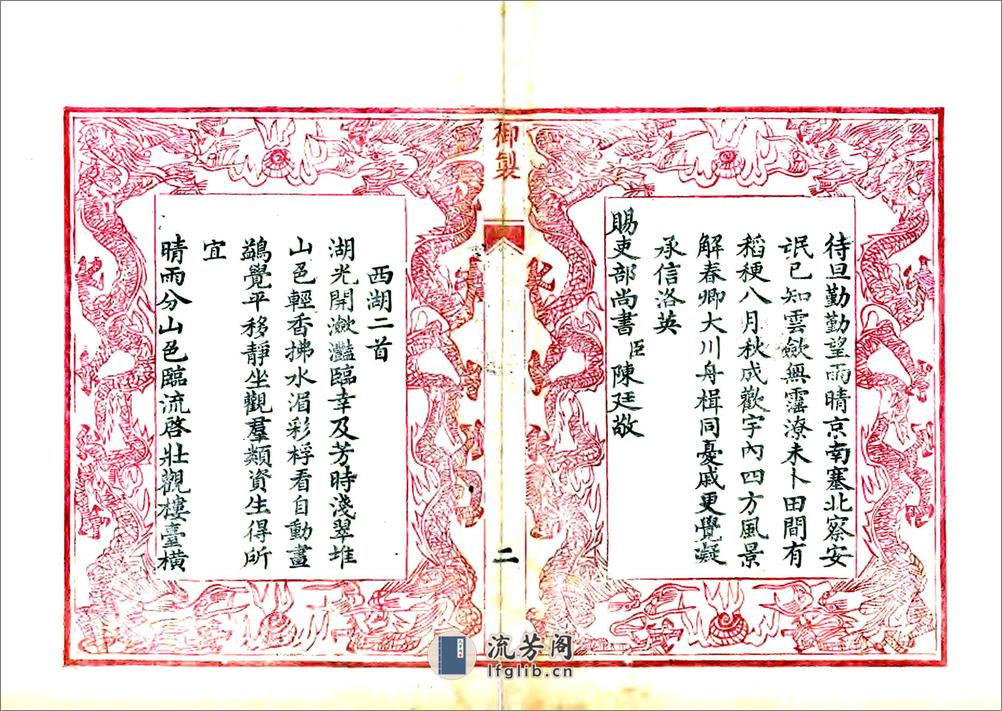 待旦勤勤望雨晴京南塞北察安
氓已知雲歛無霪潦未卜田間有
稻粳八月秋成歡宇內四方風景
解春卿大川舟楫同憂戚更覺凝
承信洛英
賜吏部尚書臣陳廷敬
御製
二
西湖二首
湖光開瀲灩臨幸及芳時淺翠堆
山色輕香拂水湄彩桴看自動畫
鷁覺平移靜坐觀羣類資生得所
宜
晴雨分山色臨流啓壯觀樓臺橫
流芳阁
lfglib.cn